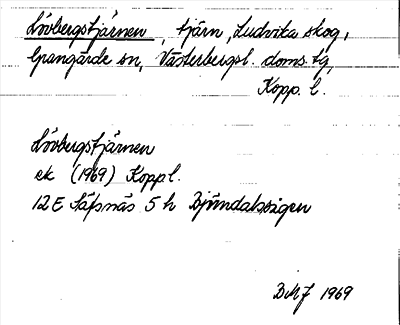 Lövbergstjärnen, tjärn, Ludvika skog,
Grangärde sn, Västerbergsl. doms. tg,
Kopp. l.
Lövbergstjärnen
ek (1969) Koppl.
12E Säfsnäs 5 h Björndalsvigen
DMJ 1969